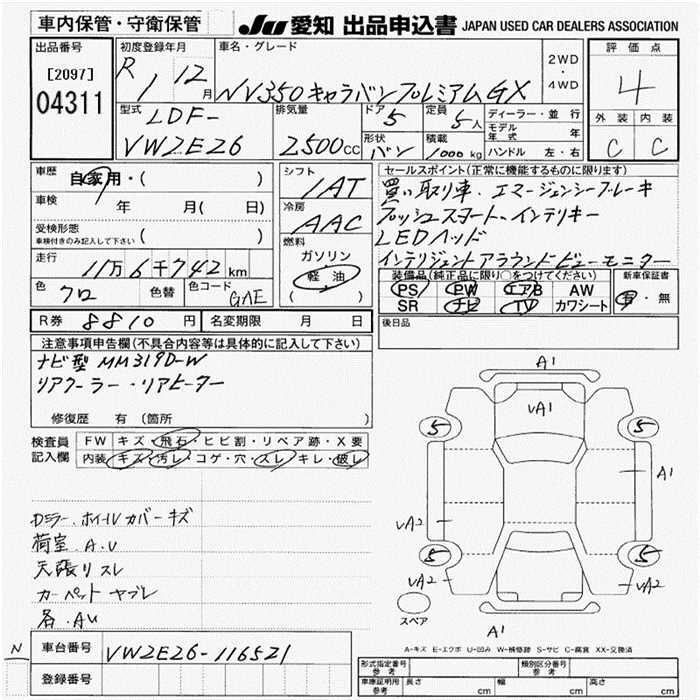 車内保管・守衛保管
JU 愛知 出品申込書 JAPAN USED CAR DEALERS ASSOCIATION
出品番号
[2097]
04311
初度登録年月
R 1 12月
車名・グレード
NV350キャラバンプレミアムGX
2WD
・
4WD
評価点
4
外装 内装
C C
型式
LDF-
VW2E26
排気量
2500CC
ドア
5
定員
5人
形状
バン
積載
1000kg
ディーラー・並行
モデル年式 年
ハンドル 左・右
車歴
自家用・( )
車検
年 月( 日)
受検形態
車検付きのみ記入して下さい ( )
走行
11万6千742km
色
クロ
色替
色コード
GAE
シフト
IAT
冷房
AAC
燃料
ガソリン
軽油
( )
セールスポイント(正常に機能するものに限ります)
買い取り車、エマージェンシーブレーキ
プッシュスタート、インテリキー
LEDヘッド
インテリジェントアラウンドビューモニター
装備品(純正品に限り〇をつけてください)
PS PW エアB AW
SR ナビ TV カワシート
新車保証書
有・無
R券 8810円
名変期限 月 日
後日品
注意事項申告欄(不具合内容等は具体的に記入して下さい)
ナビ型MM319D-W
リアクーラー・リアヒーター
修復歴 有(箇所
検査員
記入欄
FW キズ・飛石・ヒビ割・リペア跡・X要
内装 キズ・汚レ・コゲ・穴・スレ・キレ・破レ
Dミラー、ホイルカバーキズ
荷室、A.U
天張リスレ
カーペットヤブレ
各、AU
A1
VA1
5 5
A1
VA2
5 5
VA2 VA2
スペア
A1
A-キズ E-エクボ U-凹み W-補修跡 S-サビ C-腐食 XX-交換済
N
車台番号
VW2E26-116521
登録番号
形式指定番号
参考
類別区分番号
参考
車庫証明用
参考
長さ cm 幅 cm 高さ cm